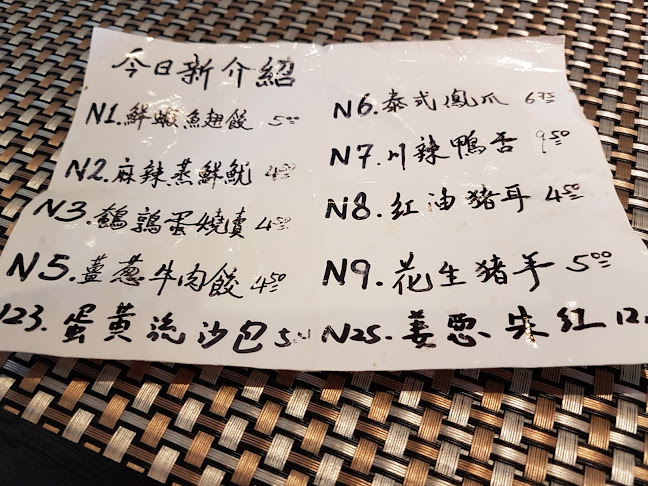 今日新介紹
N1.鮮蝦魚翅餃 5.00
N2.麻辣蒸鮮魷 4.50
N3.鵪鶉蛋燒賣 4.50
N5.薑蔥牛肉餃 4.50
123.蛋黃流沙包 5.
N6.泰式鳳爪
N7.川辣鴨舌 9.50
N8.红油豬耳 4.50
N9.花生豬手 5.00
N25.姜葱 红 12.